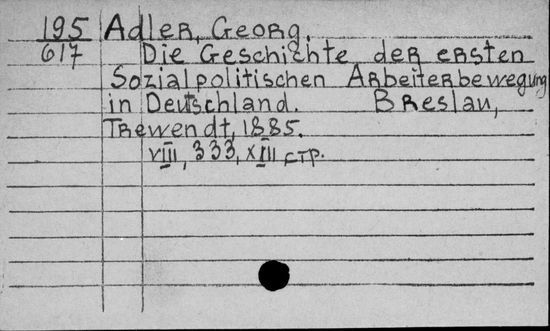 195 Adler, Georg.
617 Die Geschichte der ersten
Sozialpolitischen Arbeiterbewegung
in Deutschland. Breslau,
Trewendt, 1885.
VIII, 333, XIII стр.